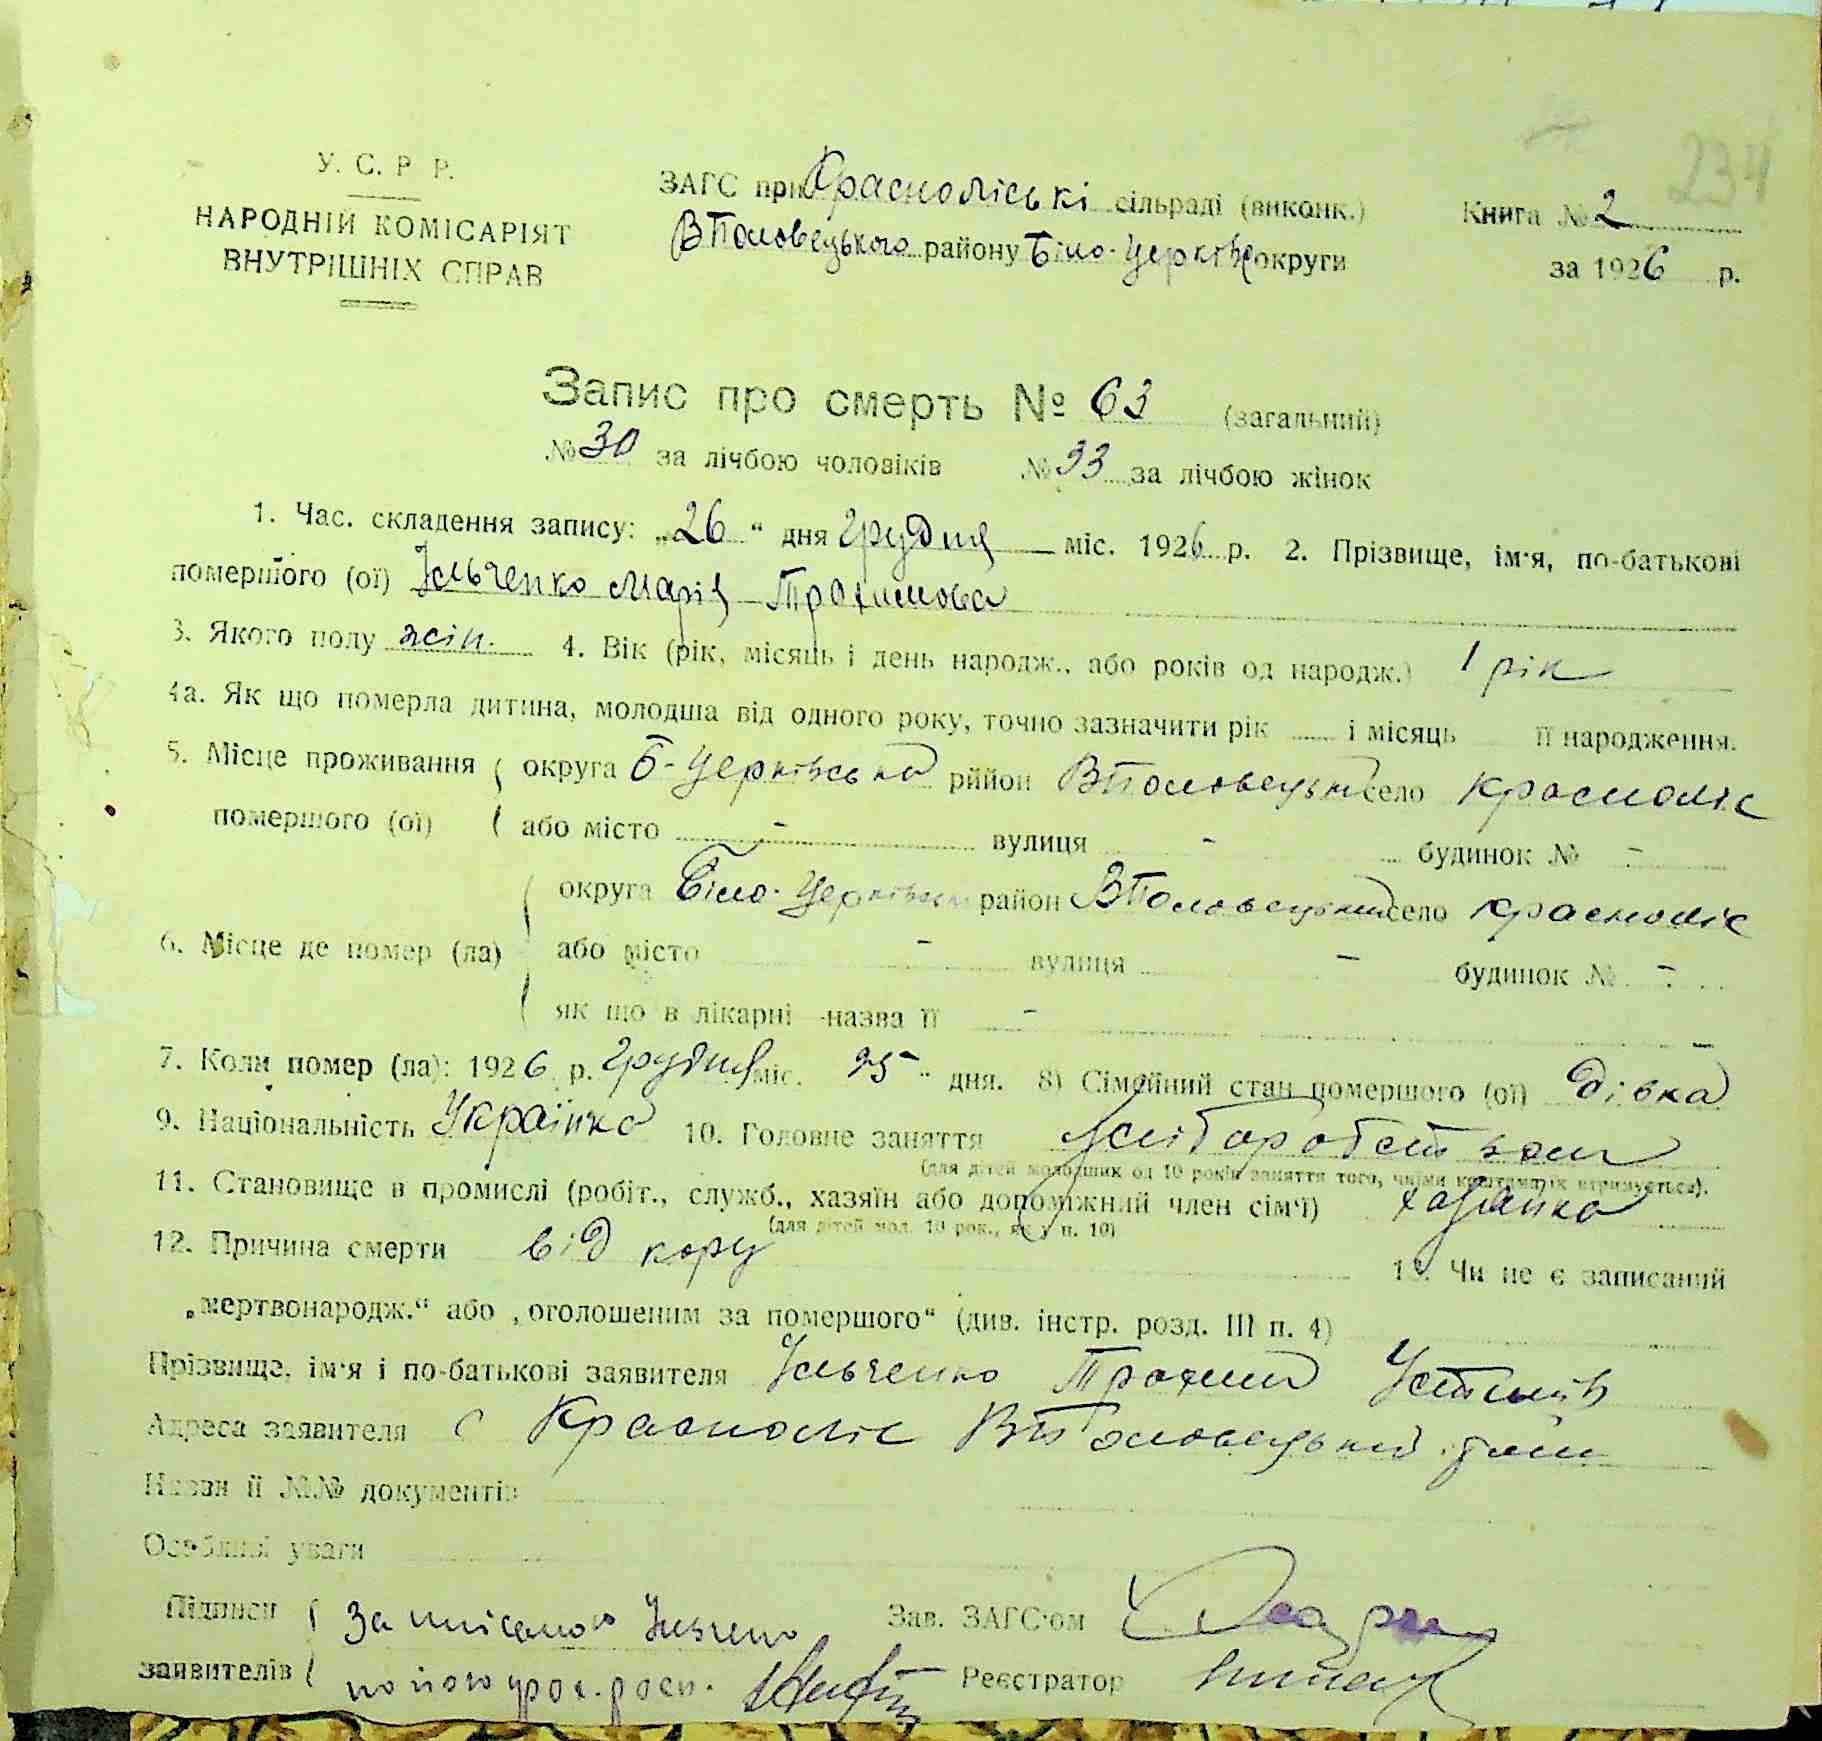 234
У. С. Р Р.
НАРОДНІЙ КОМІСАРІЯТ
ВНУТРІШНІХ СПРАВ
ЗАГС при Красноліські сільраді (виконк.)
ВПоловецького району Біло-Церків округи
Книга № 2
за 1926 р.
Запис про смерть № 63 (загальний)
№ 30 за лічбою чоловіків № 33 за лічбою жінок
1. Час. складення запису: „26“ дня Грудня міс. 1926 р. 2. Прізвище, ім'я, по-батькові
помершого (ої) Ільченко Марія Трохимова
3. Якого полу жін. 4. Вік (рік, місяць і день народж., або років од народж.) 1 рік
4а. Як що померла дитина, молодша від одного року, точно зазначити рік і місяць її народження.
5. Місце проживання округа Б-Церківська рййон ВПоловецький село Красноліс
помершого (ої) або місто - вулиця - будинок № -
округа Біло-Церківськ район ВПоловецький село Красноліс
6. Місце де помер (ла) або місто - вулиця - будинок № -
як що в лікарні -назва її -
7. Коли помер (ла): 1926 р. Грудня міс. 25 дня. 8) Сімейний стан помершого (ої) дівка
9. Національність Українка 10. Головне заняття хліборобством
(для дітей молодших од 10 років заняття того, чиїми коштами їх втримується).
11. Становище в промислі (робіт., служб., хазяїн або допоміжний член сім'ї) хазяйка
(для дітей мол. 10 рок., як у п. 10)
12. Причина смерти від кору 13. Чи не є записаний
„мертвонародж.“ або „оголошеним за помершого“ (див. інстр. розд. III п. 4)
Прізвище, ім'я і по-батькові заявителя Ільченко Трохим Устимів
Адреса заявителя С Красноліс ВПоловецький район
Назви її №№ документів
Особливі уваги
Підписи За неписьмого Ільченко Зав. ЗАГС'ом
заявителів по його прох. росп. Реєстратор